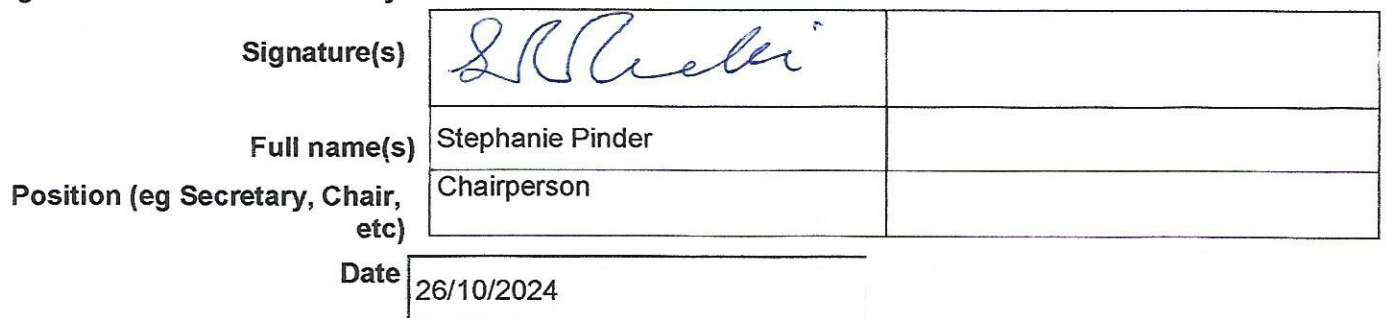 Signature(s)
Full name(s) Stephanie Pinder
Position (eg Secretary, Chair, Chairperson
etc)
Date 26/10/2024